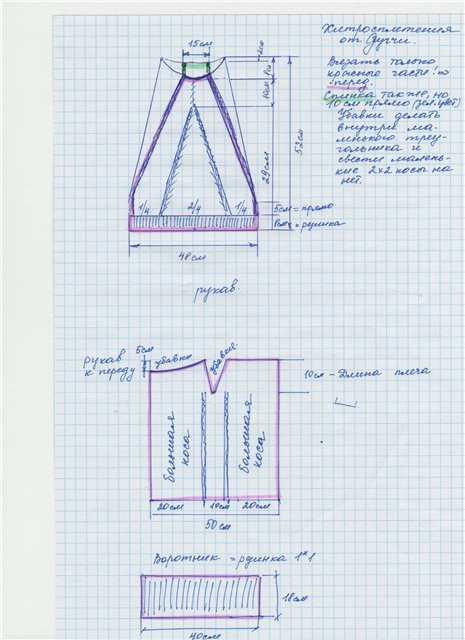 Хитросплетения
от Гуччи.
Вязать только
красные части :-о
:перед.
Спинка также, но
10 см прямо (зел. цвет)
Убавки делать
внутри ма-
ленького треу-
гольника и
свести малень-
кие 2х2 косы на
нет.
15см
10см
29см
52см
1/4
2/4
1/4
5см = прямо
8см = резинка
48см
рукав.
5см
рукав
к переду
убавки
убавки
10см - Длина плеча
большая
коса
большая
коса
20см
10см
20см
50см
Воротник = резинка 1*1
18см
40см